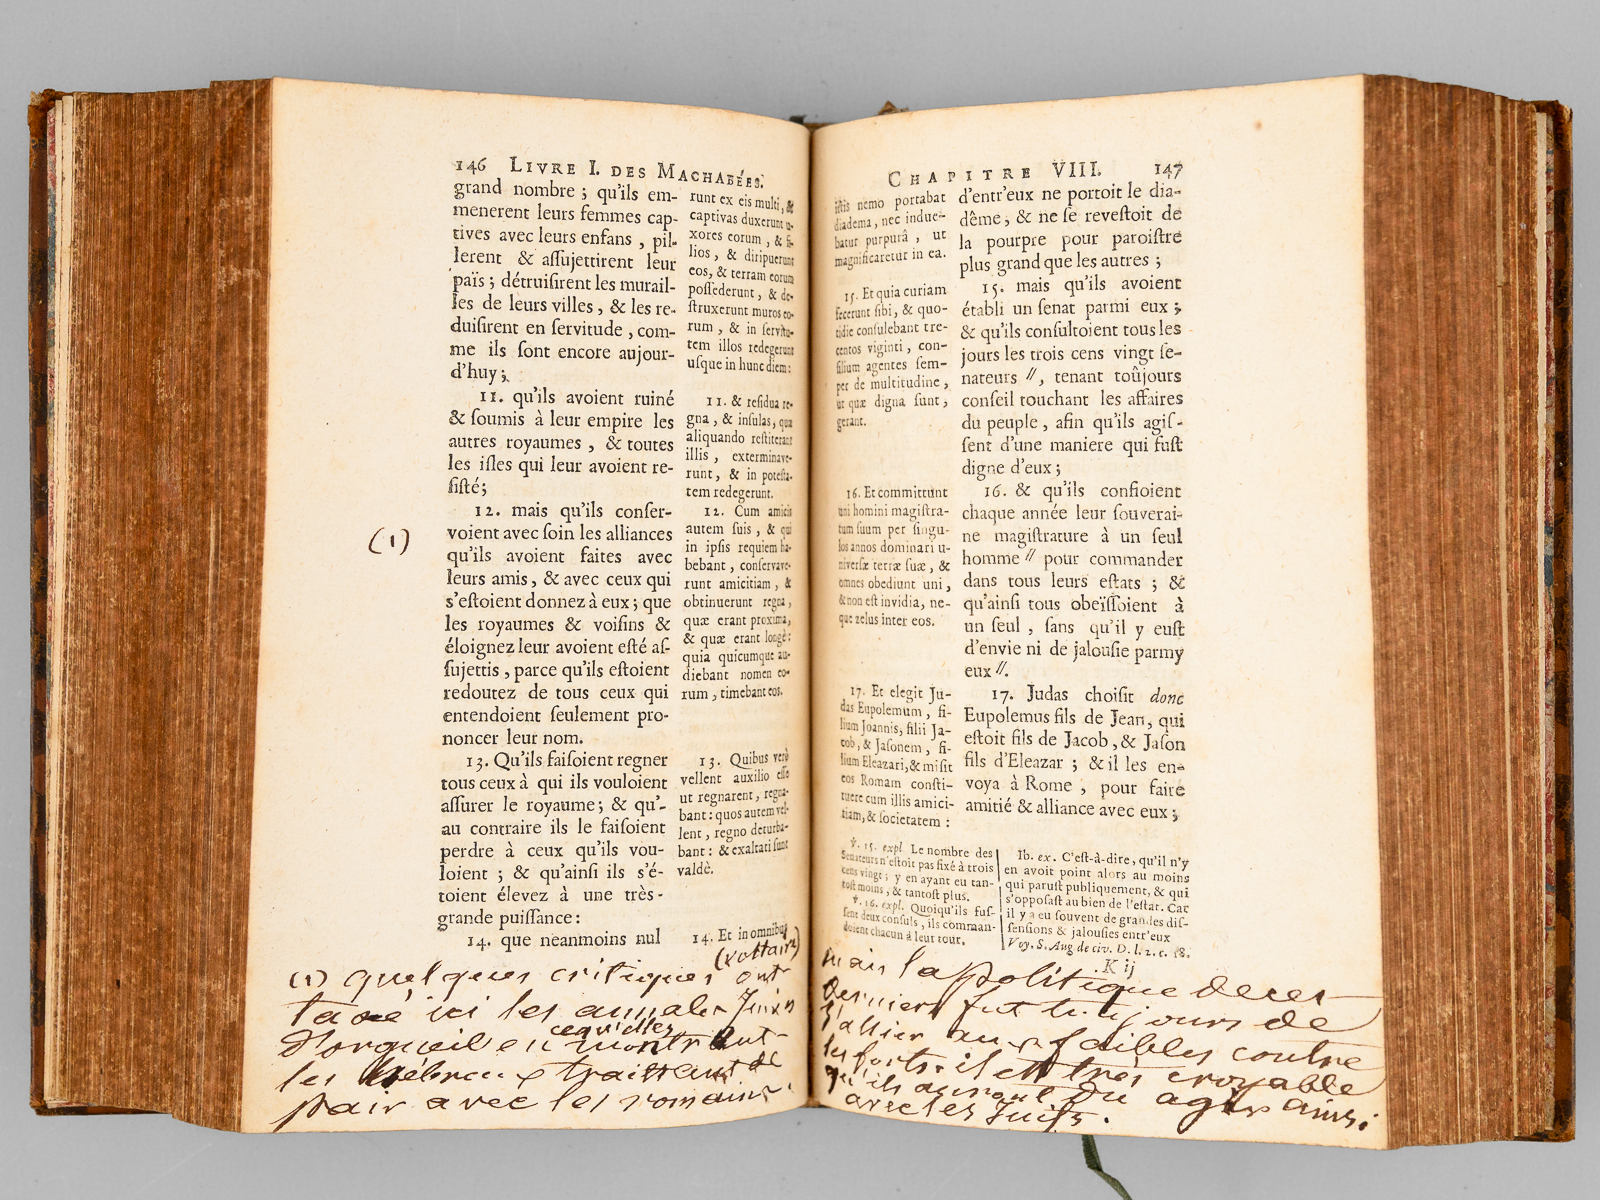 146 LIVRE I. DES MACHABÉES.
grand nombre ; qu'ils em-
menerent leurs femmes cap-
tives avec leurs enfans , pil-
lerent & aſſujettirent leur
païs ; détruiſirent les murail-
les de leurs villes , & les re-
duiſirent en ſervitude , com-
me ils ſont encore aujour-
d'huy ;
11. qu'ils avoient ruiné
& ſoumis à leur empire les
autres royaumes , & toutes
les iſles qui leur avoient re-
ſiſté ;
12. mais qu'ils conſer-
voient avec ſoin les alliances
qu'ils avoient faites avec
leurs amis , & avec ceux qui
s'eſtoient donnez à eux ; que
les royaumes & voiſins &
éloignez leur avoient eſté aſ-
ſujettis , parce qu'ils eſtoient
redoutez de tous ceux qui
entendoient ſeulement pro-
noncer leur nom.
13. Qu'ils faiſoient regner
tous ceux à qui ils vouloient
aſſurer le royaume ; & qu'-
au contraire ils le faiſoient
perdre à ceux qu'ils vou-
loient ; & qu'ainſi ils s'é-
toient élevez à une très-
grande puiſſance :
14. que neanmoins nul
runt ex eis multi, &
captivas duxerunt u-
xores eorum , & fi-
lios , & diripuerunt
eos, & terram eorum
poſſederunt , & de-
ſtruxerunt muros eo-
rum , & in ſervitu-
tem illos redegerunt
uſque in hunc diem :
11. & reſidua re-
gna , & inſulas, quæ
aliquando reſtiterant
illis , exterminave-
runt , & in poteſta-
tem redegerunt.
12. Cum amicis
autem ſuis , & qui
in ipſis requiem ha-
bebant , conſervave-
runt amicitiam , &
obtinuerunt regna ,
quæ erant proxima,
& quæ erant longè :
quia quicumque au-
diebant nomen eo-
rum , timebant eos.
13. Quibus verò
vellent auxilio eſſe
ut regnarent , regna-
bant : quos autem vel-
lent , regno deturba-
bant : & exaltati ſunt
valdè.
14. Et in omnibus
(1)
(voltaire)
(1) quelques critiques ont
taxé ici les annales Juives
d'orgueil en
ce qu'elles
montrent
les hébreux traitant de
pair avec les romains.
CHAPITRE VIII. 147
iſtis nemo portabat
diadema , nec indue-
batur purpurâ , ut
magnificaretur in ea.
15. Et quia curiam
fecerunt ſibi , & quo-
tidie conſulebant tre-
centos viginti , con-
ſilium agentes ſem-
per de multitudine ,
ut quæ digna ſunt ,
gerant.
16. Et committunt
uni homini magiſtra-
tum ſuum per ſingu-
los annos dominari u-
niverſæ terræ ſuæ , &
omnes obediunt uni ,
& non eſt invidia, ne-
que zelus inter eos.
17. Et elegit Ju-
das Eupolemum , fi-
lium Joannis, filii Ja-
cob , & Jaſonem , fi-
lium Eleazari, & miſit
eos Romam conſti-
tuere cum illis amici-
tiam, & ſocietatem :
d'entr'eux ne portoit le dia-
dême , & ne ſe reveſtoit de
la pourpre pour paroiſtre
plus grand que les autres ;
15. mais qu'ils avoient
établi un ſenat parmi eux ;
& qu'ils conſultoient tous les
jours les trois cens vingt ſe-
nateurs //, tenant toûjours
conſeil touchant les affaires
du peuple , afin qu'ils agiſ-
ſent d'une maniere qui fuſt
digne d'eux ;
16. & qu'ils confioient
chaque année leur ſouverai-
ne magiſtrature à un ſeul
homme // pour commander
dans tous leurs eſtats ; &
qu'ainſi tous obeïſſoient à
un ſeul , ſans qu'il y euſt
d'envie ni de jalouſie parmy
eux //.
17. Judas choiſit donc
Eupolemus fils de Jean, qui
eſtoit fils de Jacob , & Jaſon
fils d'Eleazar ; & il les en-
voya à Rome , pour faire
amitié & alliance avec eux ;
℣. 15. expl. Le nombre des
Senateurs n'eſtoit pas fixé à trois
cens vingt ; y en ayant eu tan-
toſt moins , & tantoſt plus.
℣. 16. expl. Quoiqu'ils fuſ-
ſent deux conſuls , ils comman-
doient chacun à leur tour.
Ib. ex. C'eſt-à-dire, qu'il n'y
en avoit point alors au moins
qui paruſt publiquement, & qui
s'oppoſaſt au bien de l'eſtat. Car
il y a eu ſouvent de grandes diſ-
ſenſions & jalouſies entr'eux
Voy. S. Aug de civ. D. l. 2. c. 18.
K ij
mais la politique de ces
derniers fut toujours de
s'allier aux faibles contre
les forts. il est très croyable
qu'ils auront du agir ainsi
avec les Juifs.